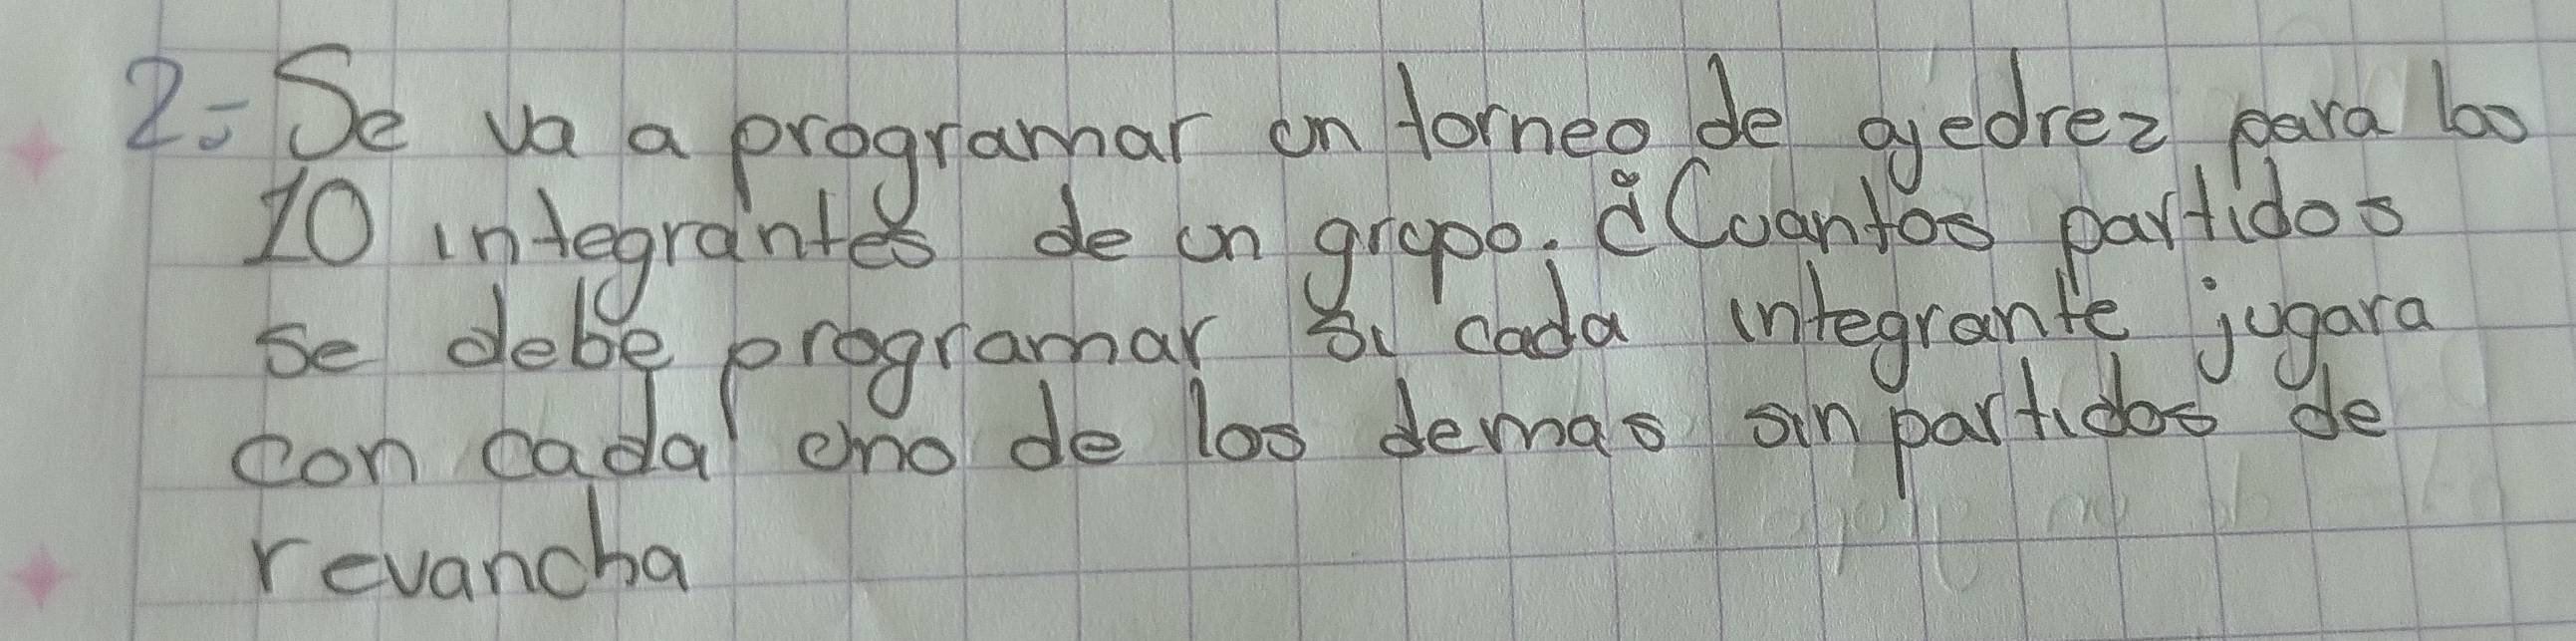 2.- Se va a programar un torneo de ajedrez para los
10 integrantes de un grupo. ¿Cuantos partidos
se debe programar si cada integrante jugara
con cada uno de los demas sin partidos de
revancha